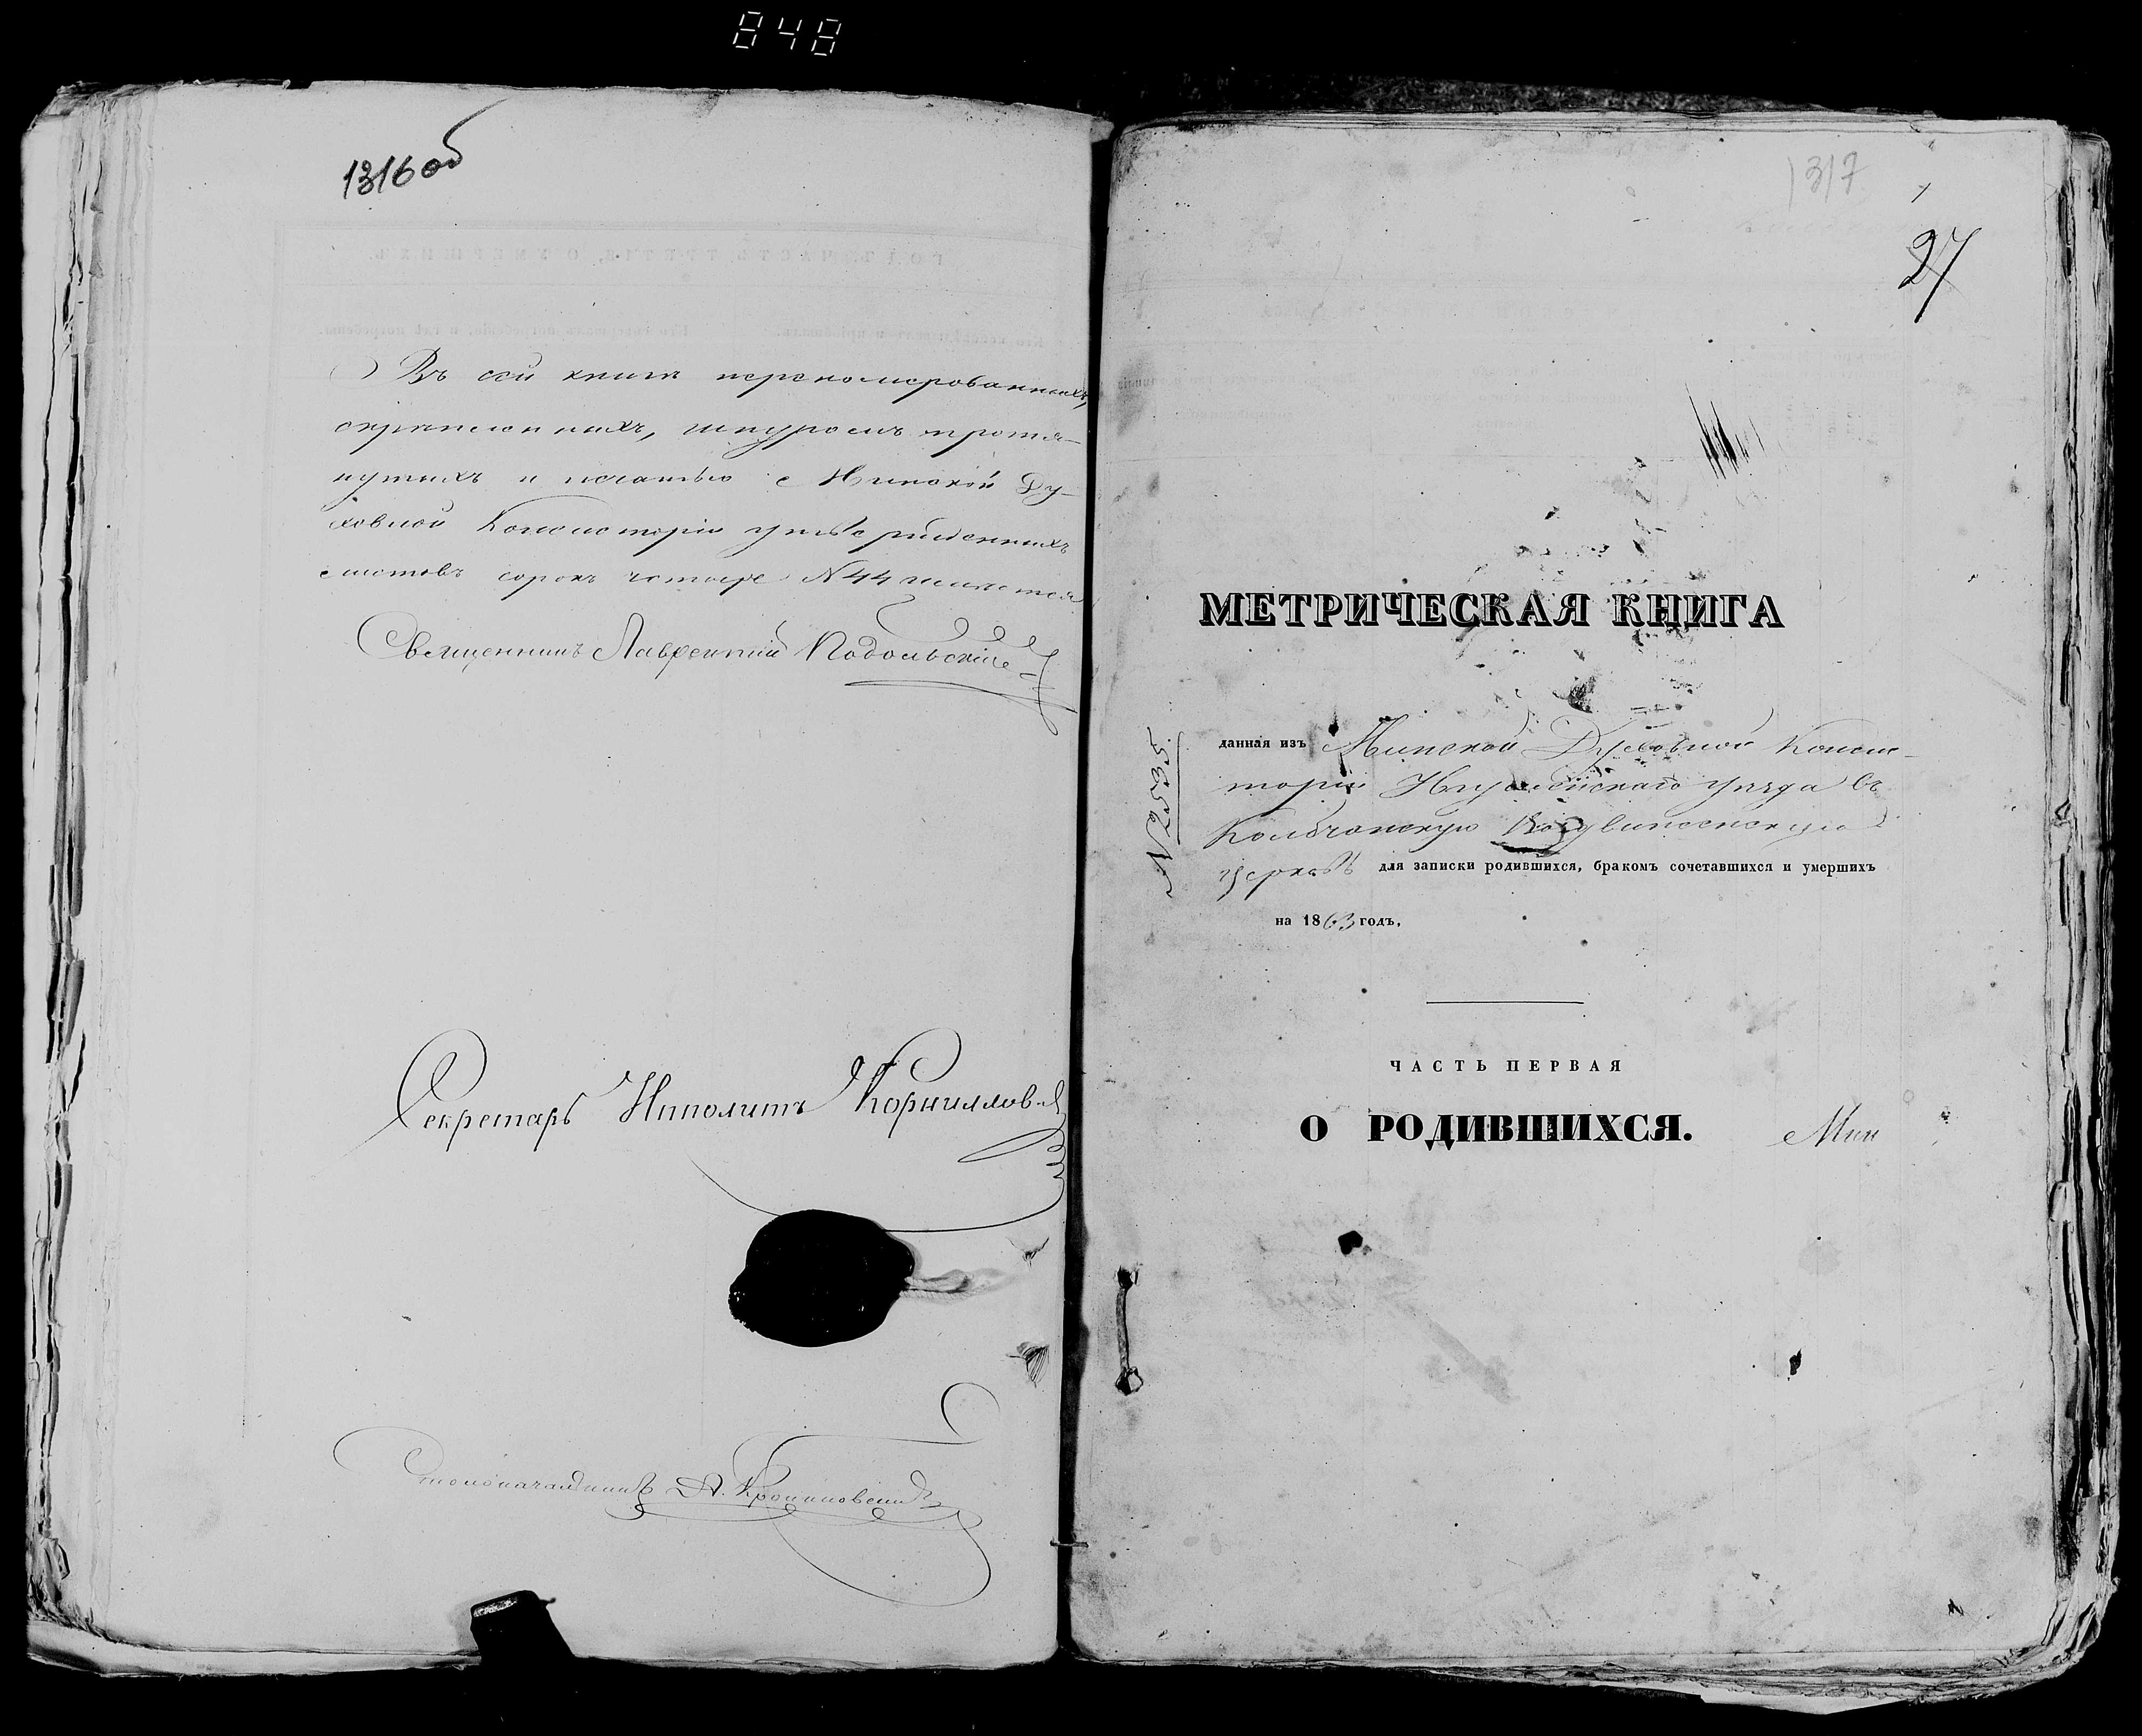 848
1316об
Въ сей книгѣ переномерованныхъ,
скрѣпленныхъ, шнуромъ протя-
нутыхъ и печатью Минской Ду-
ховной Консисторіи утвержденныхъ
листовъ сорокъ четыре N 44 имѣется
Священникъ Лаврентій Подольскій
Секретарь Ипполитъ Корниллов
Столоначальникъ
1317
27
МЕТРИЧЕСКАЯ КНИГА
N 2535.
данная изъ Минской Духовной Конси-
сторіи Игуменскаго уѣзда въ
Колбчанскую Воздвиженскую
церковь для записки родившихся, бракомъ сочетавшихся и умершихъ
на 1863 годъ.
ЧАСТЬ ПЕРВАЯ
О РОДИВШИХСЯ.
Мин